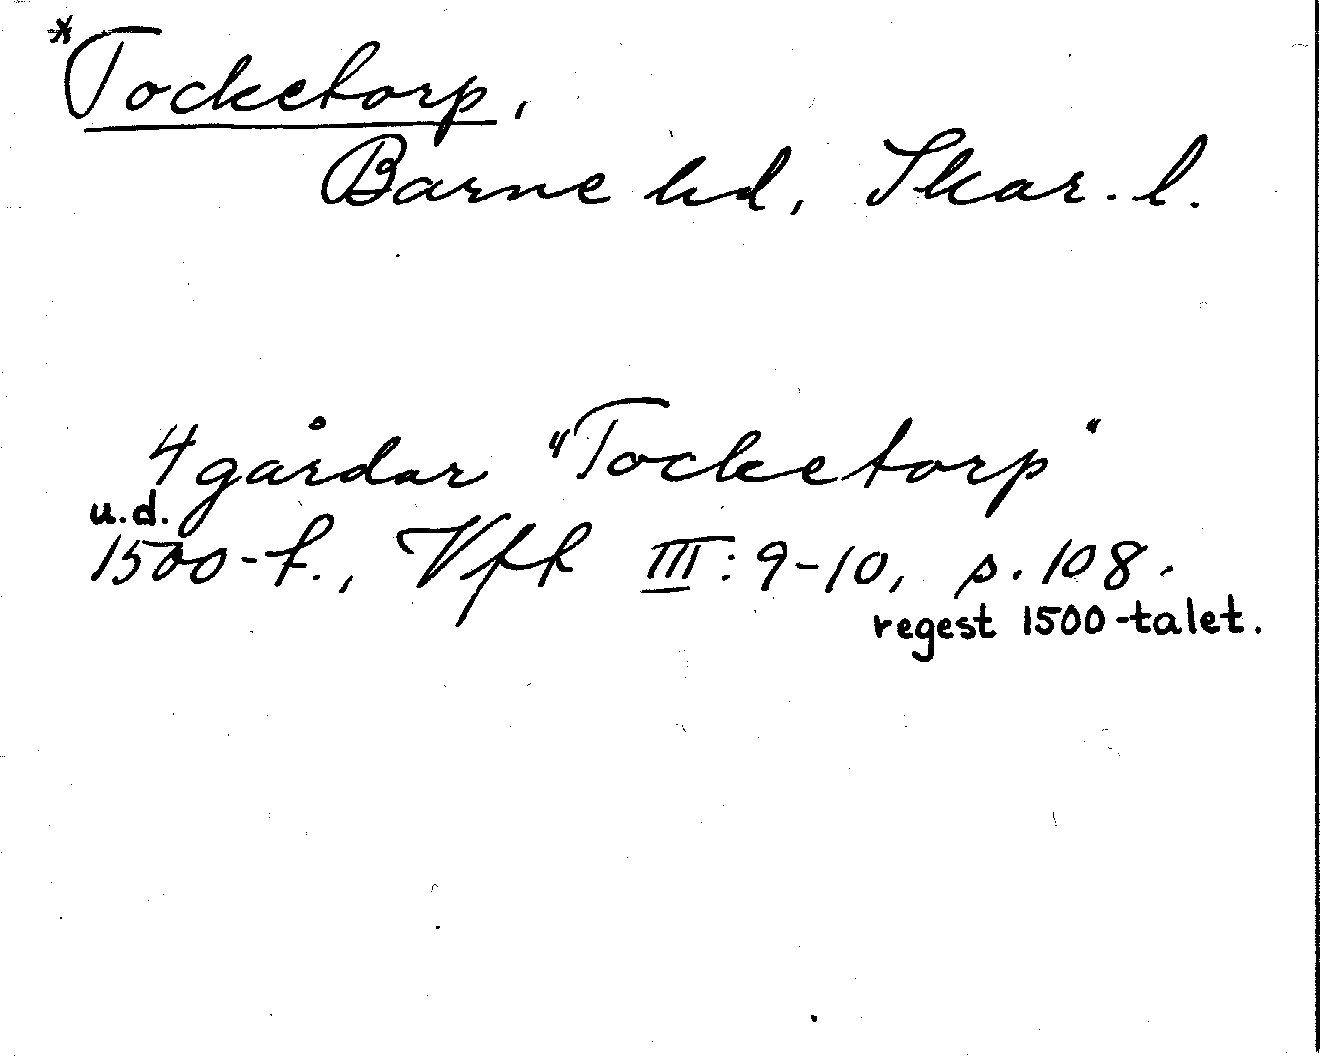 *Tocketorp,
Barne hd, Skar. l.
4 gårdar "Tocketorp"
u.d.
1500-t., Vfh III: 9-10, s. 108.
regest 1500-talet.